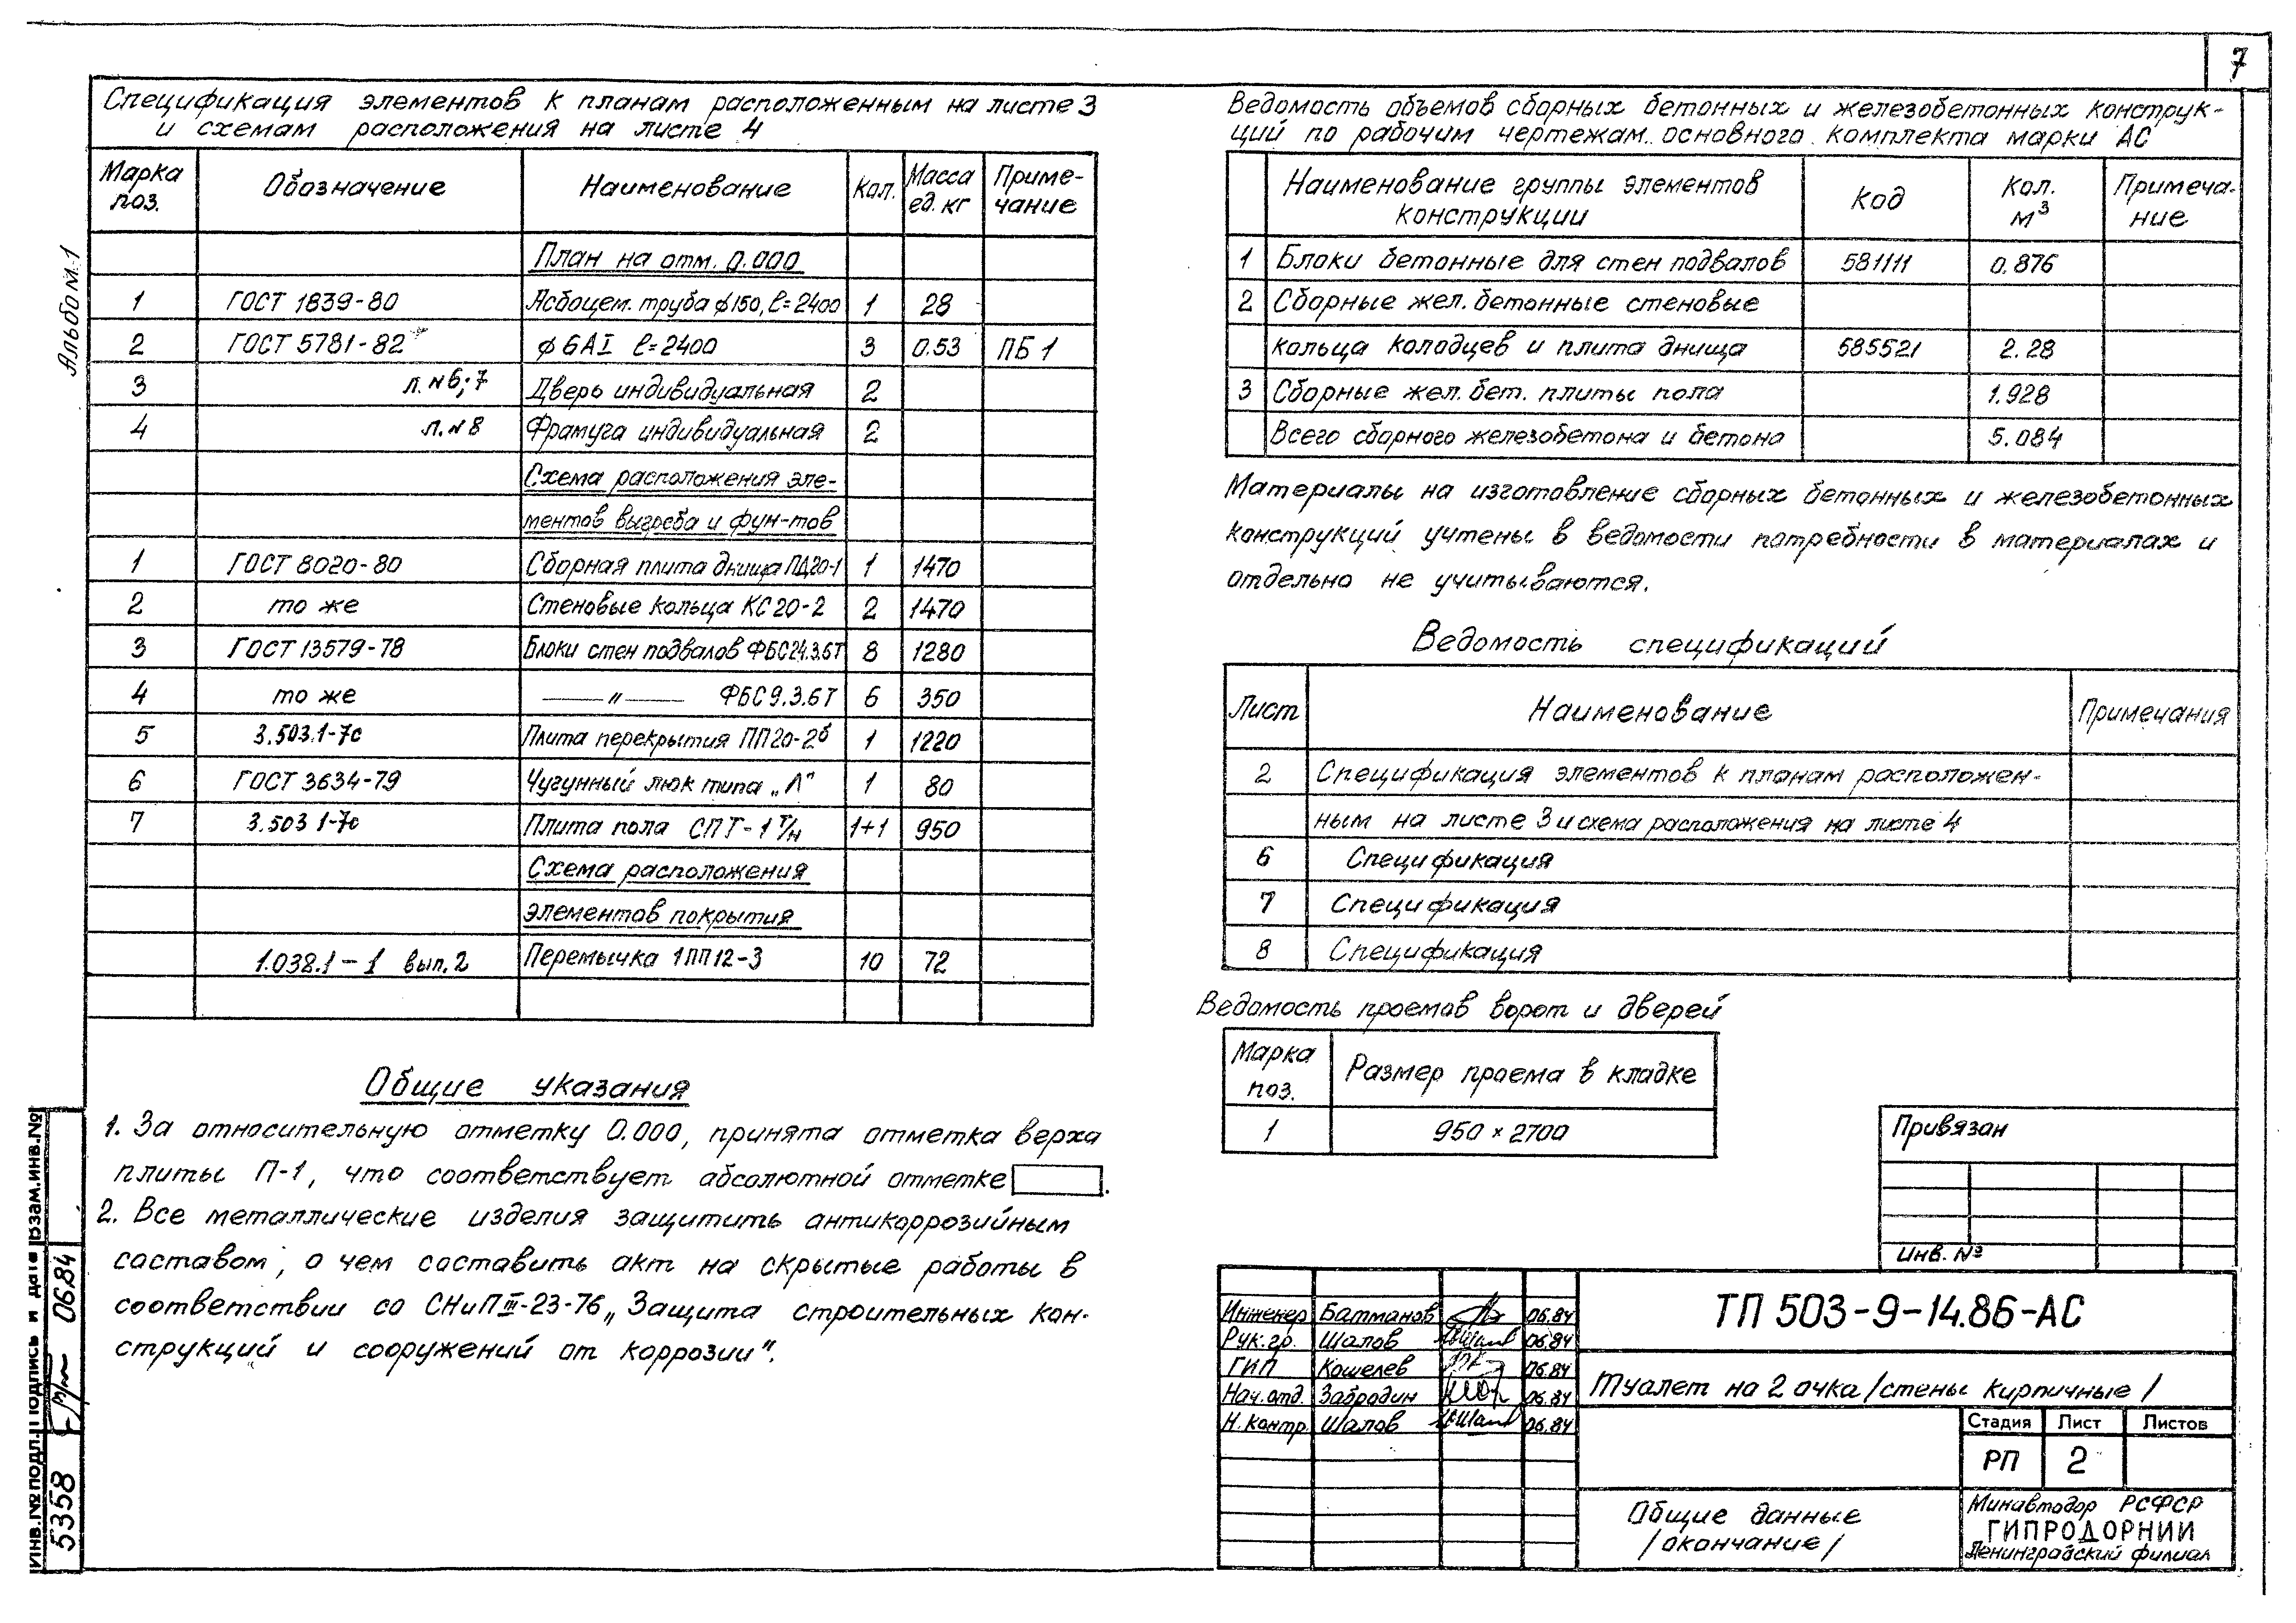 7
Альбом 1
Спецификация элементов к планам расположенным на листе 3
и схемам расположения на листе 4
Марка поз. Обозначение Наименование Кол. Масса ед. кг Приме-чание
План на отм. 0.000
1 ГОСТ 1839-80 Асбоцем. труба ϕ150, ℓ=2400 1 28
2 ГОСТ 5781-82 ϕ6АI ℓ=2400 3 0.53 ПБ 1
3 л. №6; 7 Дверь индивидуальная 2
4 л. №8 Фрамуга индивидуальная 2
Схема расположения эле-
ментов выгреба и фун-тов
1 ГОСТ 8020-80 Сборная плита днища ПД20-1 1 1470
2 то же Стеновые кольца КС 20-2 2 1470
3 ГОСТ 13579-78 Блоки стен подвалов ФБС24.3.6Т 8 1280
4 то же —— " —— ФБС9.3.6Т 6 350
5 3.503.1-7с Плита перекрытия ПП20-2б 1 1220
6 ГОСТ 3634-79 Чугунный люк типа „Л" 1 80
7 3.503 1-7с Плита пола СПТ-1 т/н 1+1 950
Схема расположения
элементов покрытия
1.038.1-1 вып. 2 Перемычка 1ПП12-3 10 72
Общие указания
1. За относительную отметку 0.000, принята отметка верха
плиты П-1, что соответствует абсолютной отметке .
2. Все металлические изделия защитить антикоррозийным
составом, о чем составить акт на скрытые работы в
соответствии со СНиП III-23-76 „Защита строительных кон-
струкций и сооружений от коррозии".
Ведомость объемов сборных бетонных и железобетонных конструк-
ций по рабочим чертежам основного комплекта марки АС
Наименование группы элементов конструкции Код Кол. м³ Примеча-ние
1 Блоки бетонные для стен подвалов 581111 0.876
2 Сборные жел. бетонные стеновые
кольца колодцев и плита днища 585521 2.28
3 Сборные жел. бет. плиты пола 1.928
Всего сборного железобетона и бетона 5.084
Материалы на изготовление сборных бетонных и железобетонных
конструкций учтены в ведомости потребности в материалах и
отдельно не учитываются.
Ведомость спецификаций
Лист Наименование Примечания
2 Спецификация элементов к планам расположен-
ным на листе 3 и схема расположения на листе 4
6 Спецификация
7 Спецификация
8 Спецификация
Ведомость проемов ворот и дверей
Марка поз. Размер проема в кладке
1 950 × 2700
Привязан
Инв. №
Инженер Батманов 06.84
Рук. гр. Шалов 06.84
ГИП Кошелев 06.84
Нач. отд. Забродин 06.84
Н. контр. Шалов 06.84
ТП 503-9-14.86-АС
Туалет на 2 очка /стены кирпичные/
Стадия Лист Листов
РП 2
Общие данные
/окончание/
Минавтодор РСФСР
ГИПРОДОРНИИ
Ленинградский филиал
Инв. № подл. Подпись и дата Взам. инв. №
5358 06.84